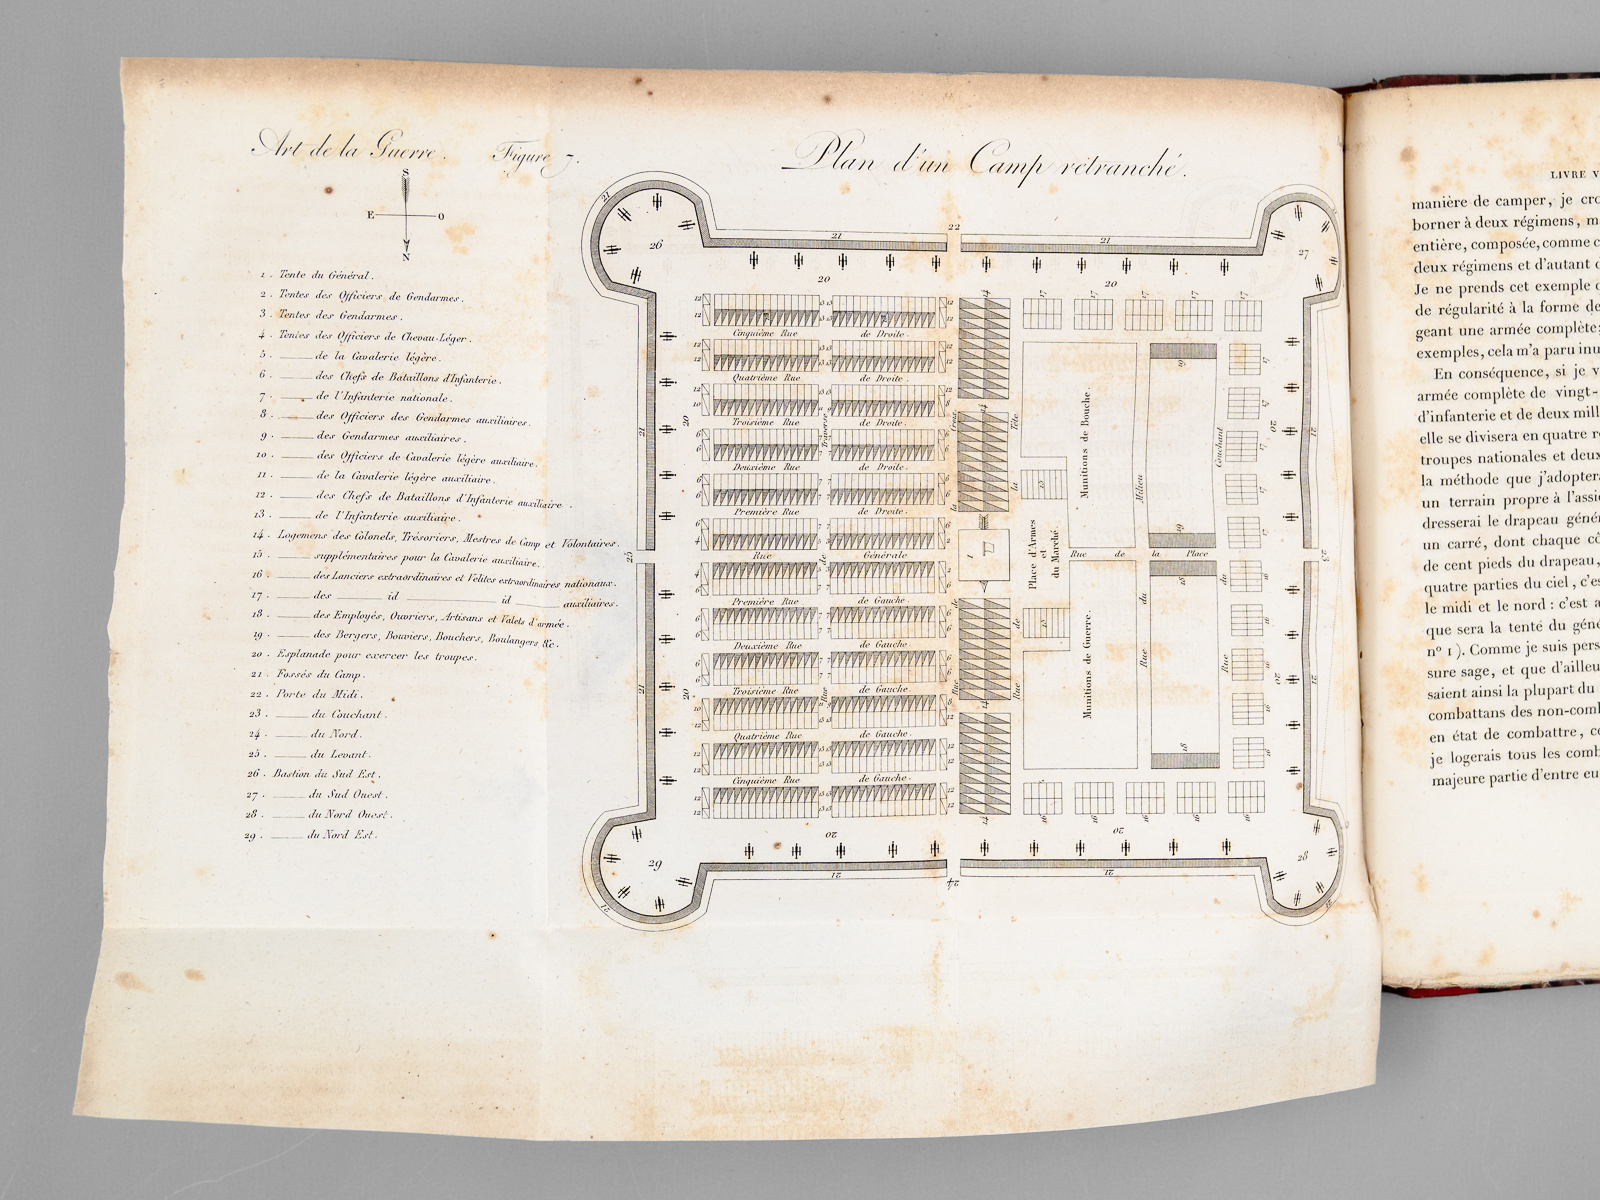 Art de la Guerre. Figure 7.
Plan d'un Camp retranché.
S
E O
N
1. Tente du Général.
2. Tentes des Officiers de Gendarmes.
3. Tentes des Gendarmes.
4. Tentes des Officiers de Chevau-Léger.
5. ____ de la Cavalerie légère.
6. ____ des Chefs de Bataillons d'Infanterie.
7. ____ de l'Infanterie nationale.
8. ____ des Officiers des Gendarmes auxiliaires.
9. ____ des Gendarmes auxiliaires.
10. ____ des Officiers de Cavalerie légère auxiliaire.
11. ____ de la Cavalerie légère auxiliaire.
12. ____ des Chefs de Bataillons d'Infanterie auxiliaire.
13. ____ de l'Infanterie auxiliaire.
14. Logemens des Colonels, Trésoriers, Mestres de Camp et Volontaires.
15. ____ supplémentaires pour la Cavalerie auxiliaire.
16. ____ des Lanciers extraordinaires et Velites extraordinaires nationaux.
17. ____ des ____ id ____ id ____ auxiliaires.
18. ____ des Employés, Ouvriers, Artisans et Valets d'armée.
19. ____ des Bergers, Bouviers, Bouchers, Boulangers &c.
20. Esplanade pour exercer les troupes.
21. Fossés du Camp.
22. Porte du Midi.
23. ____ du Couchant.
24. ____ du Nord.
25. ____ du Levant.
26. Bastion du Sud Est.
27. ____ du Sud Ouest.
28. ____ du Nord Ouest.
29. ____ du Nord Est.
22
21 21
26 27
20 20
Cinquième Rue de Droite.
Quatrième Rue de Droite.
Troisième Rue de Droite.
Deuxième Rue de Droite.
Première Rue de Droite.
Rue Générale
Première Rue de Gauche.
Deuxième Rue de Gauche.
Troisième Rue de Gauche.
Quatrième Rue de Gauche.
Cinquième Rue de Gauche.
Rue de la Tête
Munitions de Bouche.
Place d'Armes
et
du Marché.
Rue de la Place
Munitions de Guerre.
Rue du Milieu
Rue du Couchant
25 23
20 20
29 28
21 21
24
LIVRE V
manière de camper, je cro
borner à deux régimens, m
entière, composée, comme c
deux régimens et d'autant d
Je ne prends cet exemple q
de régularité à la forme de
geant une armée complète;
exemples, cela m'a paru inu
En conséquence, si je v
armée complète de vingt-
d'infanterie et de deux mill
elle se divisera en quatre r
troupes nationales et deux
la méthode que j'adopter
un terrain propre à l'assie
dresserai le drapeau géné
un carré, dont chaque cô
de cent pieds du drapeau,
quatre parties du ciel, c'es
le midi et le nord : c'est a
que sera la tente du géné
n° 1). Comme je suis pers
sure sage, et que d'ailleu
saient ainsi la plupart du
combattans des non-comb
en état de combattre, co
je logerais tous les comb
majeure partie d'entre eu